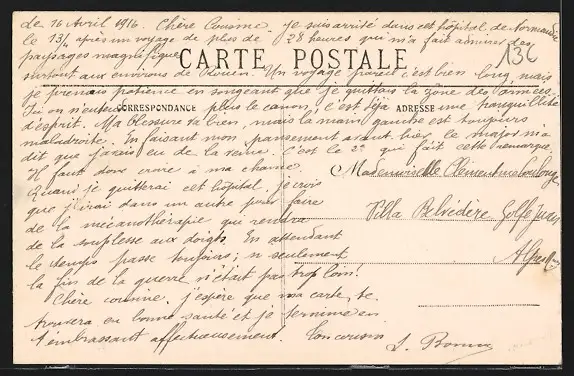 Le 16 Avril 1916. Chère Cousine. Je suis arrivé dans cet hôpital de Normandie
le 13/ après un voyage de plus de 28 heures qui m'a fait admirer des
paysages magnifiques
136
CARTE POSTALE
surtout aux environs de Rouen. Un voyage pareil c'est bien long mais
je prenais patience en songeant que je quittais la zone des armées.
CORRESPONDANCE
ADRESSE
Tu on n'entend plus le canon, c'est déjà une tranquillité
d'esprit. Ma blessure va bien, mais la main gauche est toujours
maladroite. En faisant mon pansement avant hier le major m'a
dit que j'avais eu de la veine. C'est le 2e qui fait cette remarque.
Il faut donc croire à ma chance.
Quand je quitterai cet hôpital, je crois
que j'irai dans un autre pour faire
de la mécanothérapie qui rendra
de la souplesse aux doigts. En attendant
le temps passe toujours; si seulement
la fin de la guerre n'était pas trop loin!
Chère cousine, j'espère que ma carte te
trouvera en bonne santé et je termine en
t'embrassant affectueusement. Ton cousin
Mademoiselle Clémentine
Villa Belvédère Golfe Juan